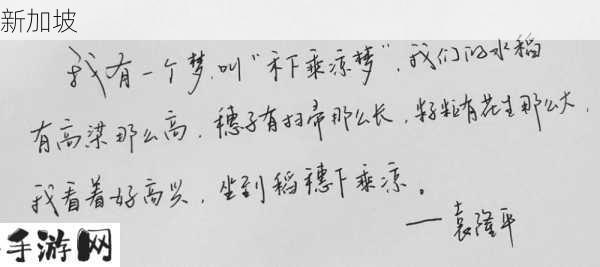 新加坡
我有一个梦，叫“禾下乘凉梦”，我们的水稻
有高粱那么高，穗子有扫帚那么长，籽粒有花生那么大，
我看着好高兴，坐到稻穗下乘凉。
——袁隆平
手游网